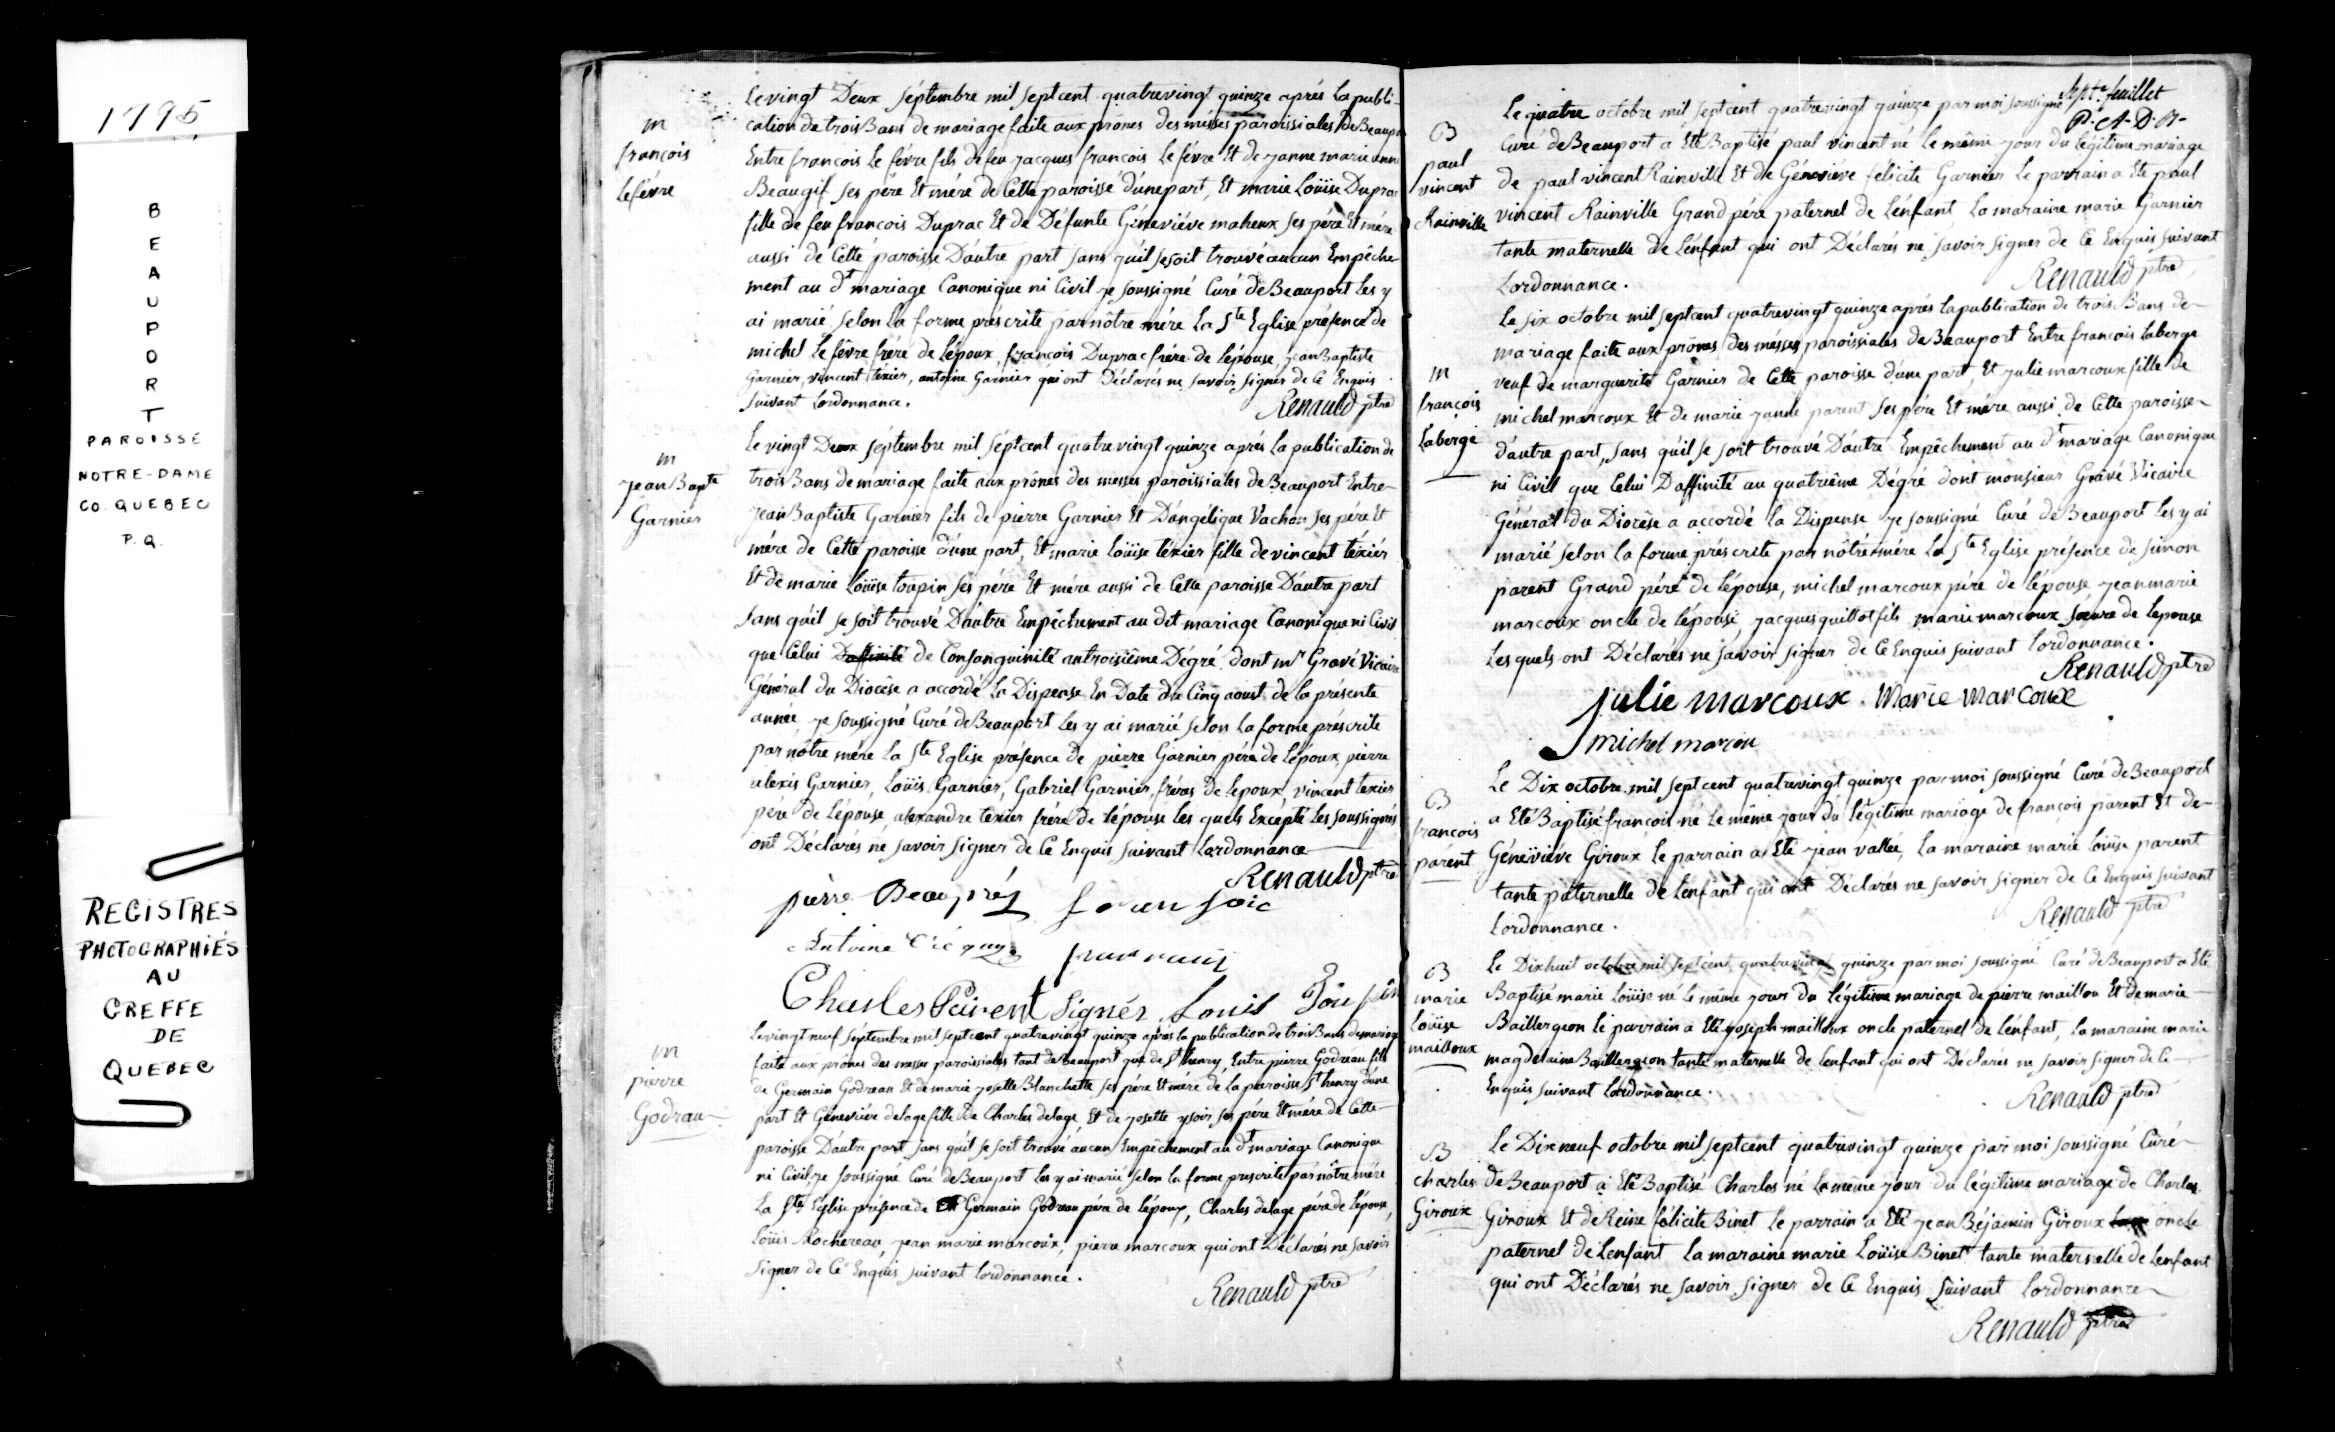 1795
B
E
A
U
P
O
R
T
PAROISSE
NOTRE-DAME
CO. QUEBEC
P.Q.
REGISTRES
PHOTOGRAPHIÉS
AU
GREFFE
DE
QUEBEC
m
francois
Lefévre
Le vingt Deux séptembre mil sept cent quatrevingt quinze aprés la publi-
cation de trois Bans de mariage faite aux prônes des mésses paroissiales de Beaup
Entre francois Le févre fils de feu jacques francois Lefévre Et de janne marie anne
Beaugif ses pére Et mére de Cette paroisse d'une part, Et marie Loüise Duprac
fille de feu francois Duprac Et de Défunte Généviéve maheux ses pére Et mére
aussi de Cette paroisse D'autre part sans qu'il se soit trouvé aucun Empêche-
ment au dt mariage Canonique ni Civil je soussigné Curé de Beauport Les y
ai marié selon la forme préscrite par nôtre mére La Ste Eglise présence de
michel Le févre frére de L'époux, francois Duprac frére de L'épouse, jean Baptiste
Garnier, vincent téxier, antoine Garnier qui ont Déclarés ne savoir signer de Ce Enquis
suivant Lordonnance.
Renauld ptre
m
jean Bapte
Garnier
Le vingt Deux séptembre mil séptcent quatrevingt quinze aprés La publication de
trois Bans de mariage faite aux prônes des messes paroissiales de Beauport Entre
jean Baptiste Garnier fils de pierre Garnier Et D'angélique Vachon ses pére Et
mére de Cette paroisse d'une part, Et marie Loüise téxier fille de vincent téxier
Et de marie Loüise toupin ses pére Et mére aussi de Cette paroisse D'autre part
sans qu'il se soit trouvé D'autre Empêchement au dit mariage Canonique ni Civil
que Celui Daffinité de Consanguinité au troisiéme Dégré dont mr Gravé Vicaire
Général du Diocése a accordé La Dispense En Date du Cinq aoust de la présente
année je soussigné Curé de Beauport Les y ai marié selon la forme préscrite
par nôtre mére La Ste Eglise présence de pierre Garnier pére de L'époux, pierre
alexis Garnier, Loüis Garnier, Gabriel Garnier, fréres de Lepoux, vincent texier
pére de L'épouse, alexandre texier frére de L'épouse Les quels Excépté Les soussignés
ont Déclarés ne savoir signer de Ce Enquis suivant Lordonnance
Renauld ptre
pierre
Antoine
Charles Parent Signér Louis Toupin
m
pierre
Godrau
Le vingt neuf séptembre mil septcent quatrevingt quinze aprés la publication de trois Bans de mariage
faite aux prônes des messes paroissiales tant de Beauport que de St henry, Entre pierre Godreau fils
de Germain Godreau Et de marie josette Blanchette ses pére Et mére de La paroisse St henry d'une
part Et Généviéve delage fille de Charles delage Et de josette ysoir ses pére Et mére de Cette
paroisse D'autre part, sans qu'il se soit trouvé aucun Empêchement au dt mariage Canonique
ni Civil je soussigné Curé de Beauport Les y ai marié selon la forme prescrite par nôtre mére
La Ste Eglise présence de Germain Godreau pére de L'époux, Charles delage pére de L'épouse,
Loüis Rochereau, jean marie marcoux, pierre marcoux qui ont Déclarés ne savoir
signer de Ce Enquis suivant Lordonnance.
Renauld ptre
septe feuillet
P. A. D. R.
B
paul
vincent
Rainville
Le quatre octobre mil septcent quatrevingt quinze par moi soussigné
Curé de Beauport a Eté Baptisé paul vincent né Le même jour du Légitime mariage
de paul vincent Rainville Et de Généviéve félicité Garnier Le parrain a Eté paul
vincent Rainville Grand pére paternel de L'énfant La maraine marie Garnier
tante maternelle de L'énfant qui ont Déclarés ne savoir signer de Ce Enquis suivant
Lordonnance.
Renauld ptre
m
francois
Laberge
Le six octobre mil septcent quatrevingt quinze aprés la publication de trois Bans de
mariage faite aux prônes des mésses paroissiales de Beauport Entre francois Laberge
veuf de marguerite Garnier de Cette paroisse d'une part, Et julie marcoux fille de
michel marcoux Et de marie janne parent ses pére Et mére aussi de Cette paroisse
d'autre part, sans qu'il se soit trouvé D'autre Empêchement au dt mariage Canonique
ni Civil que Celui Daffinité au quatriême Dégré dont monsieur Gravé Vicaire
Général du Diocése a accordé la Dispense je soussigné Curé de Beauport Les y ai
marié selon la forme préscrite par nôtre mére La Ste Eglise présence de simon
parent Grand pére de L'épouse, michel marcoux pére de L'épouse jean marie
marcoux oncle de L'épouse jacques quillot fils marie marcoux soeure de Lepouse
Les quels ont Déclarés ne savoir signer de Ce Enquis suivant Lordonnance.
Renauld ptre
julie marcoux. Marie Marcoux
michel marcou
B
francois
parent
Le Dix octobre mil septcent quatrevingt quinze par moi soussigné Curé de Beauport
a Eté Baptisé francois né Le même jour du Légitime mariage de francois parent Et de
Généviéve Giroux Le parrain a Eté jean vallée, La maraine marie Loüise parent
tante paternelle de L'énfant qui ont Déclarés ne savoir signer de Ce Enquis suivant
Lordonnance.
Renauld ptre
B
marie
Loüise
mailloux
Le Dixhuit octobre mil septcent quatrevingt quinze par moi soussigné Curé de Beauport a Eté
Baptisé marie Loüise né Le même jour du Légitime mariage de pierre maillou Et de marie
Baillergeon Le parrain a Eté joseph mailloux oncle paternel de L'énfant, La maraine marie
magdelaine Baillergeon tante maternelle de L'enfant qui ont Déclarés ne savoir signer de Ce
Enquis suivant Lordonnance.
Renauld ptre
B
charles
Giroux
Le Dixneuf octobre mil septcent quatrevingt quinze par moi soussigné Curé
de Beauport a Eté Baptisé Charles né Le même jour du Légitime mariage de Charles
Giroux Et de Reine félicité Binet Le parrain a Eté jean Béjamin Giroux oncle
paternel de L'enfant La maraine marie Loüise Binet tante maternelle de L'enfant
qui ont Déclarés ne savoir signer de Ce Enquis suivant Lordonnance
Renauld ptre